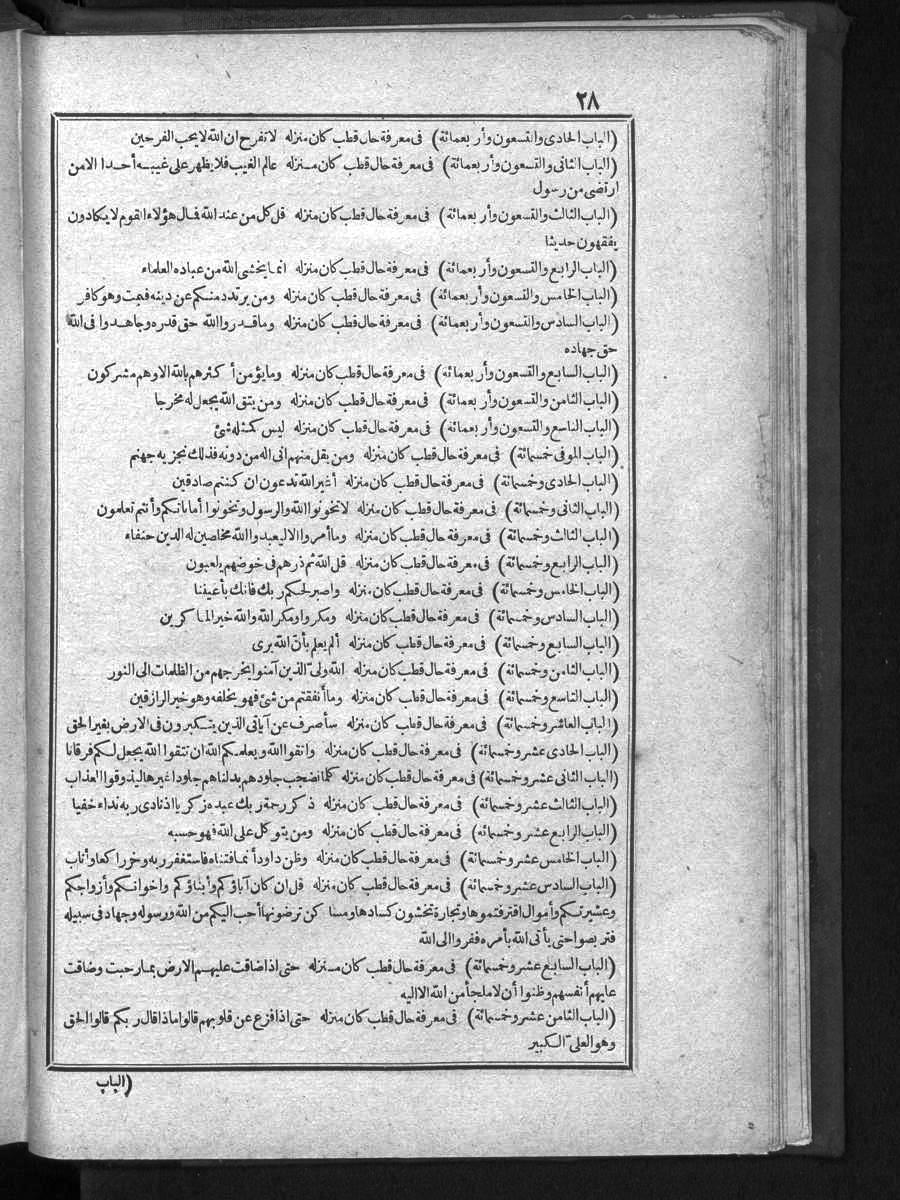 ٢٨
(الباب الحادى والتسعون وأربعمائة) فى معرفة حال قطب كان منزله لا تفرح ان الله لا يحب الفرحين
(الباب الثانى والتسعون وأربعمائة) فى معرفة حال قطب كان منزله عالم الغيب فلا يظهر على غيبه أحدا الا من
ارتضى من رسول
(الباب الثالث والتسعون وأربعمائة) فى معرفة حال قطب كان منزله قل كل من عند الله فمال هؤلاء القوم لا يكادون
يفقهون حديثا
(الباب الرابع والتسعون وأربعمائة) فى معرفة حال قطب كان منزله انما يخشى الله من عباده العلماء
(الباب الخامس والتسعون وأربعمائة) فى معرفة حال قطب كان منزله ومن يرتدد منكم عن دينه فيمت وهو كافر
(الباب السادس والتسعون وأربعمائة) فى معرفة حال قطب كان منزله وما قدروا الله حق قدره وجاهدوا فى الله
حق جهاده
(الباب السابع والتسعون وأربعمائة) فى معرفة حال قطب كان منزله وما يؤمن أكثرهم بالله الا وهم مشركون
(الباب الثامن والتسعون وأربعمائة) فى معرفة حال قطب كان منزله ومن يتق الله يجعل له مخرجا
(الباب التاسع والتسعون وأربعمائة) فى معرفة حال قطب كان منزله ليس كمثله شئ
(الباب الموفى خمسمائة) فى معرفة حال قطب كان منزله ومن يقل منهم انى اله من دونه فذلك نجزيه جهنم
(الباب الحادى وخمسمائة) فى معرفة حال قطب كان منزله أغير الله تدعون ان كنتم صادقين
(الباب الثانى وخمسمائة) فى معرفة حال قطب كان منزله لا تخونوا الله والرسول وتخونوا أماناتكم وأنتم تعلمون
(الباب الثالث وخمسمائة) فى معرفة حال قطب كان منزله وما أمروا الا ليعبدوا الله مخلصين له الدين حنفاء
(الباب الرابع وخمسمائة) فى معرفة حال قطب كان منزله قل الله ثم ذرهم فى خوضهم يلعبون
(الباب الخامس وخمسمائة) فى معرفة حال قطب كان منزله واصبر لحكم ربك فانك بأعيننا
(الباب السادس وخمسمائة) فى معرفة حال قطب كان منزله ومكروا ومكر الله والله خير الماكرين
(الباب السابع وخمسمائة) فى معرفة حال قطب كان منزله ألم يعلم بأن الله يرى
(الباب الثامن وخمسمائة) فى معرفة حال قطب كان منزله الله ولىّ الذين آمنوا يخرجهم من الظلمات الى النور
(الباب التاسع وخمسمائة) فى معرفة حال قطب كان منزله وما أنفقتم من شئ فهو يخلفه وهو خير الرازقين
(الباب العاشر وخمسمائة) فى معرفة حال قطب كان منزله سأصرف عن آياتى الذين يتكبرون فى الارض بغير الحق
(الباب الحادى عشر وخمسمائة) فى معرفة حال قطب كان منزله واتقوا الله ويعلمكم الله ان تتقوا الله يجعل لكم فرقانا
(الباب الثانى عشر وخمسمائة) فى معرفة حال قطب كان منزله كلما نضجت جلودهم بدلناهم جلودا غيرها ليذوقوا العذاب
(الباب الثالث عشر وخمسمائة) فى معرفة حال قطب كان منزله ذكر رحمة ربك عبده زكريا اذ نادى ربه نداء خفيا
(الباب الرابع عشر وخمسمائة) فى معرفة حال قطب كان منزله ومن يتوكل على الله فهو حسبه
(الباب الخامس عشر وخمسمائة) فى معرفة حال قطب كان منزله وظن داود أنما فتناه فاستغفر ربه وخر راكعا وأناب
(الباب السادس عشر وخمسمائة) فى معرفة حال قطب كان منزله قل ان كان آباؤكم وأبناؤكم واخوانكم وأزواجكم
وعشيرتكم وأموال اقترفتموها وتجارة تخشون كسادها ومساكن ترضونها أحب اليكم من الله ورسوله وجهاد فى سبيله
فتربصوا حتى يأتى الله بأمره ففروا الى الله
(الباب السابع عشر وخمسمائة) فى معرفة حال قطب كان منزله حتى اذا ضاقت عليهم الارض بما رحبت وضاقت
عليهم أنفسهم وظنوا أن لا ملجأ من الله الا اليه
(الباب الثامن عشر وخمسمائة) فى معرفة حال قطب كان منزله حتى اذا فزع عن قلوبهم قالوا ماذا قال ربكم قالوا الحق
وهو العلىّ الكبير
(الباب